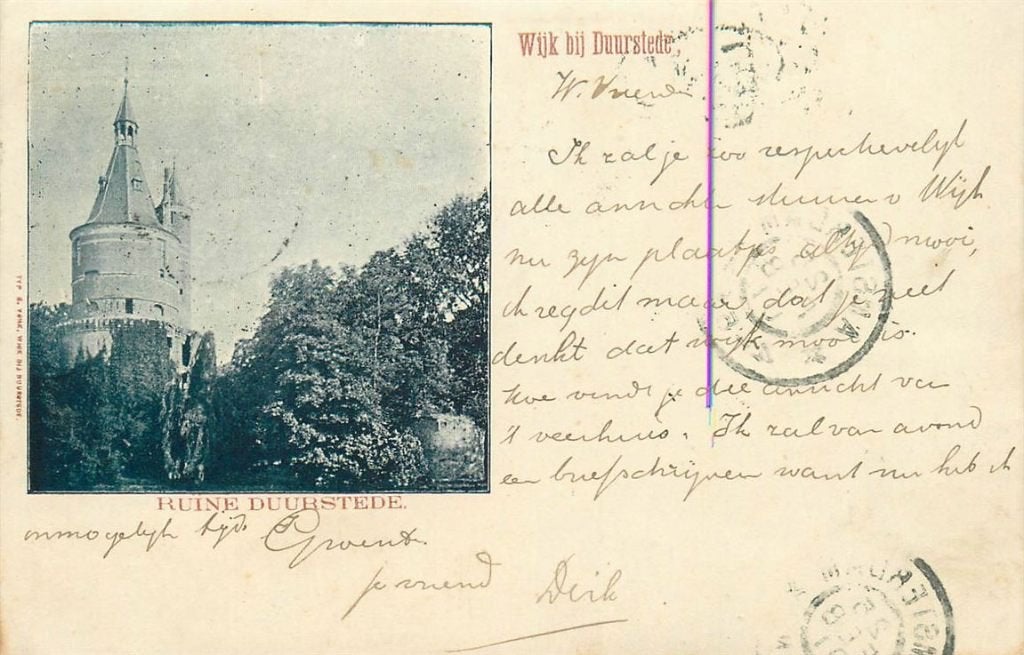 Wijk bij Duurstede,
W. Vriend
Ik zal je zoo respectievelijk
alle ansichten sturen v Wijk
nu zijn plaatje altijd mooi,
ik zeg dit maar dat je niet
denkt dat wijk mooi is.
hoe vindt je die ansicht van
't veerhuis. Ik zal van avond
een brief schrijven want nu heb ik
RUÏNE DUURSTEDE.
onmogelijk tijd. Groent.
je vriend Dirk
WIJK BIJ DUURSTEDE.